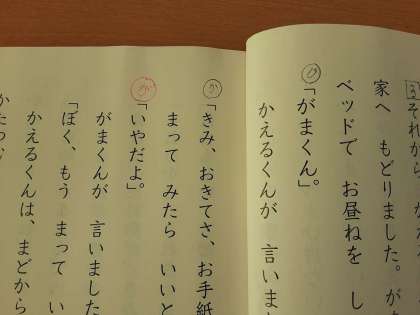 それから、
家へ もどりました。が
ベッドで お昼ねを し
か
「がまくん。」
かえるくんが 言いま
か
「きみ、おきてさ、お手紙
まって みたら いいと
が
「いやだよ。」
がまくんが 言いました
「ぼく、もう まって い
かえるくんは、まどから